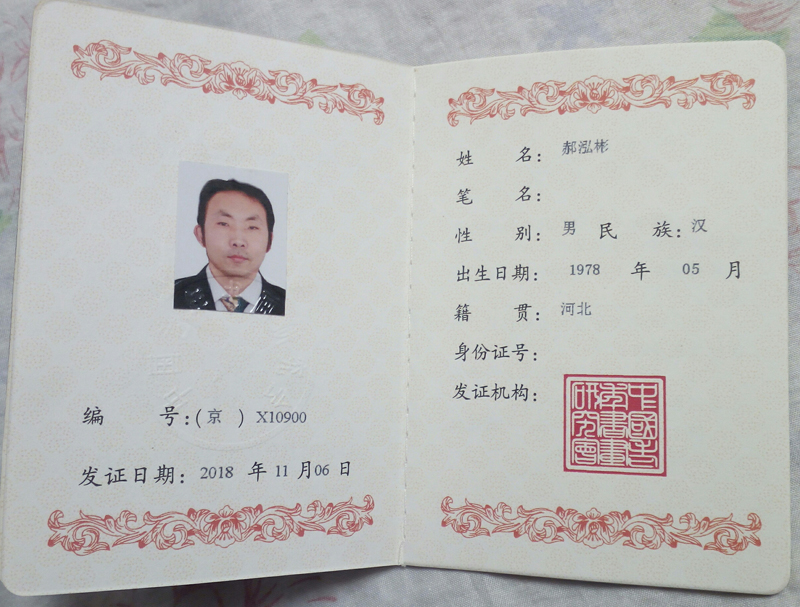 编 号:(京 ) X10900
发证日期: 2018 年 11 月 06 日
姓 名: 郝泓彬
笔 名:
性 别: 男 民 族: 汉
出生日期: 1978 年 05 月
籍 贯: 河北
身份证号:
发证机构:
中國老
年書畫
研究會